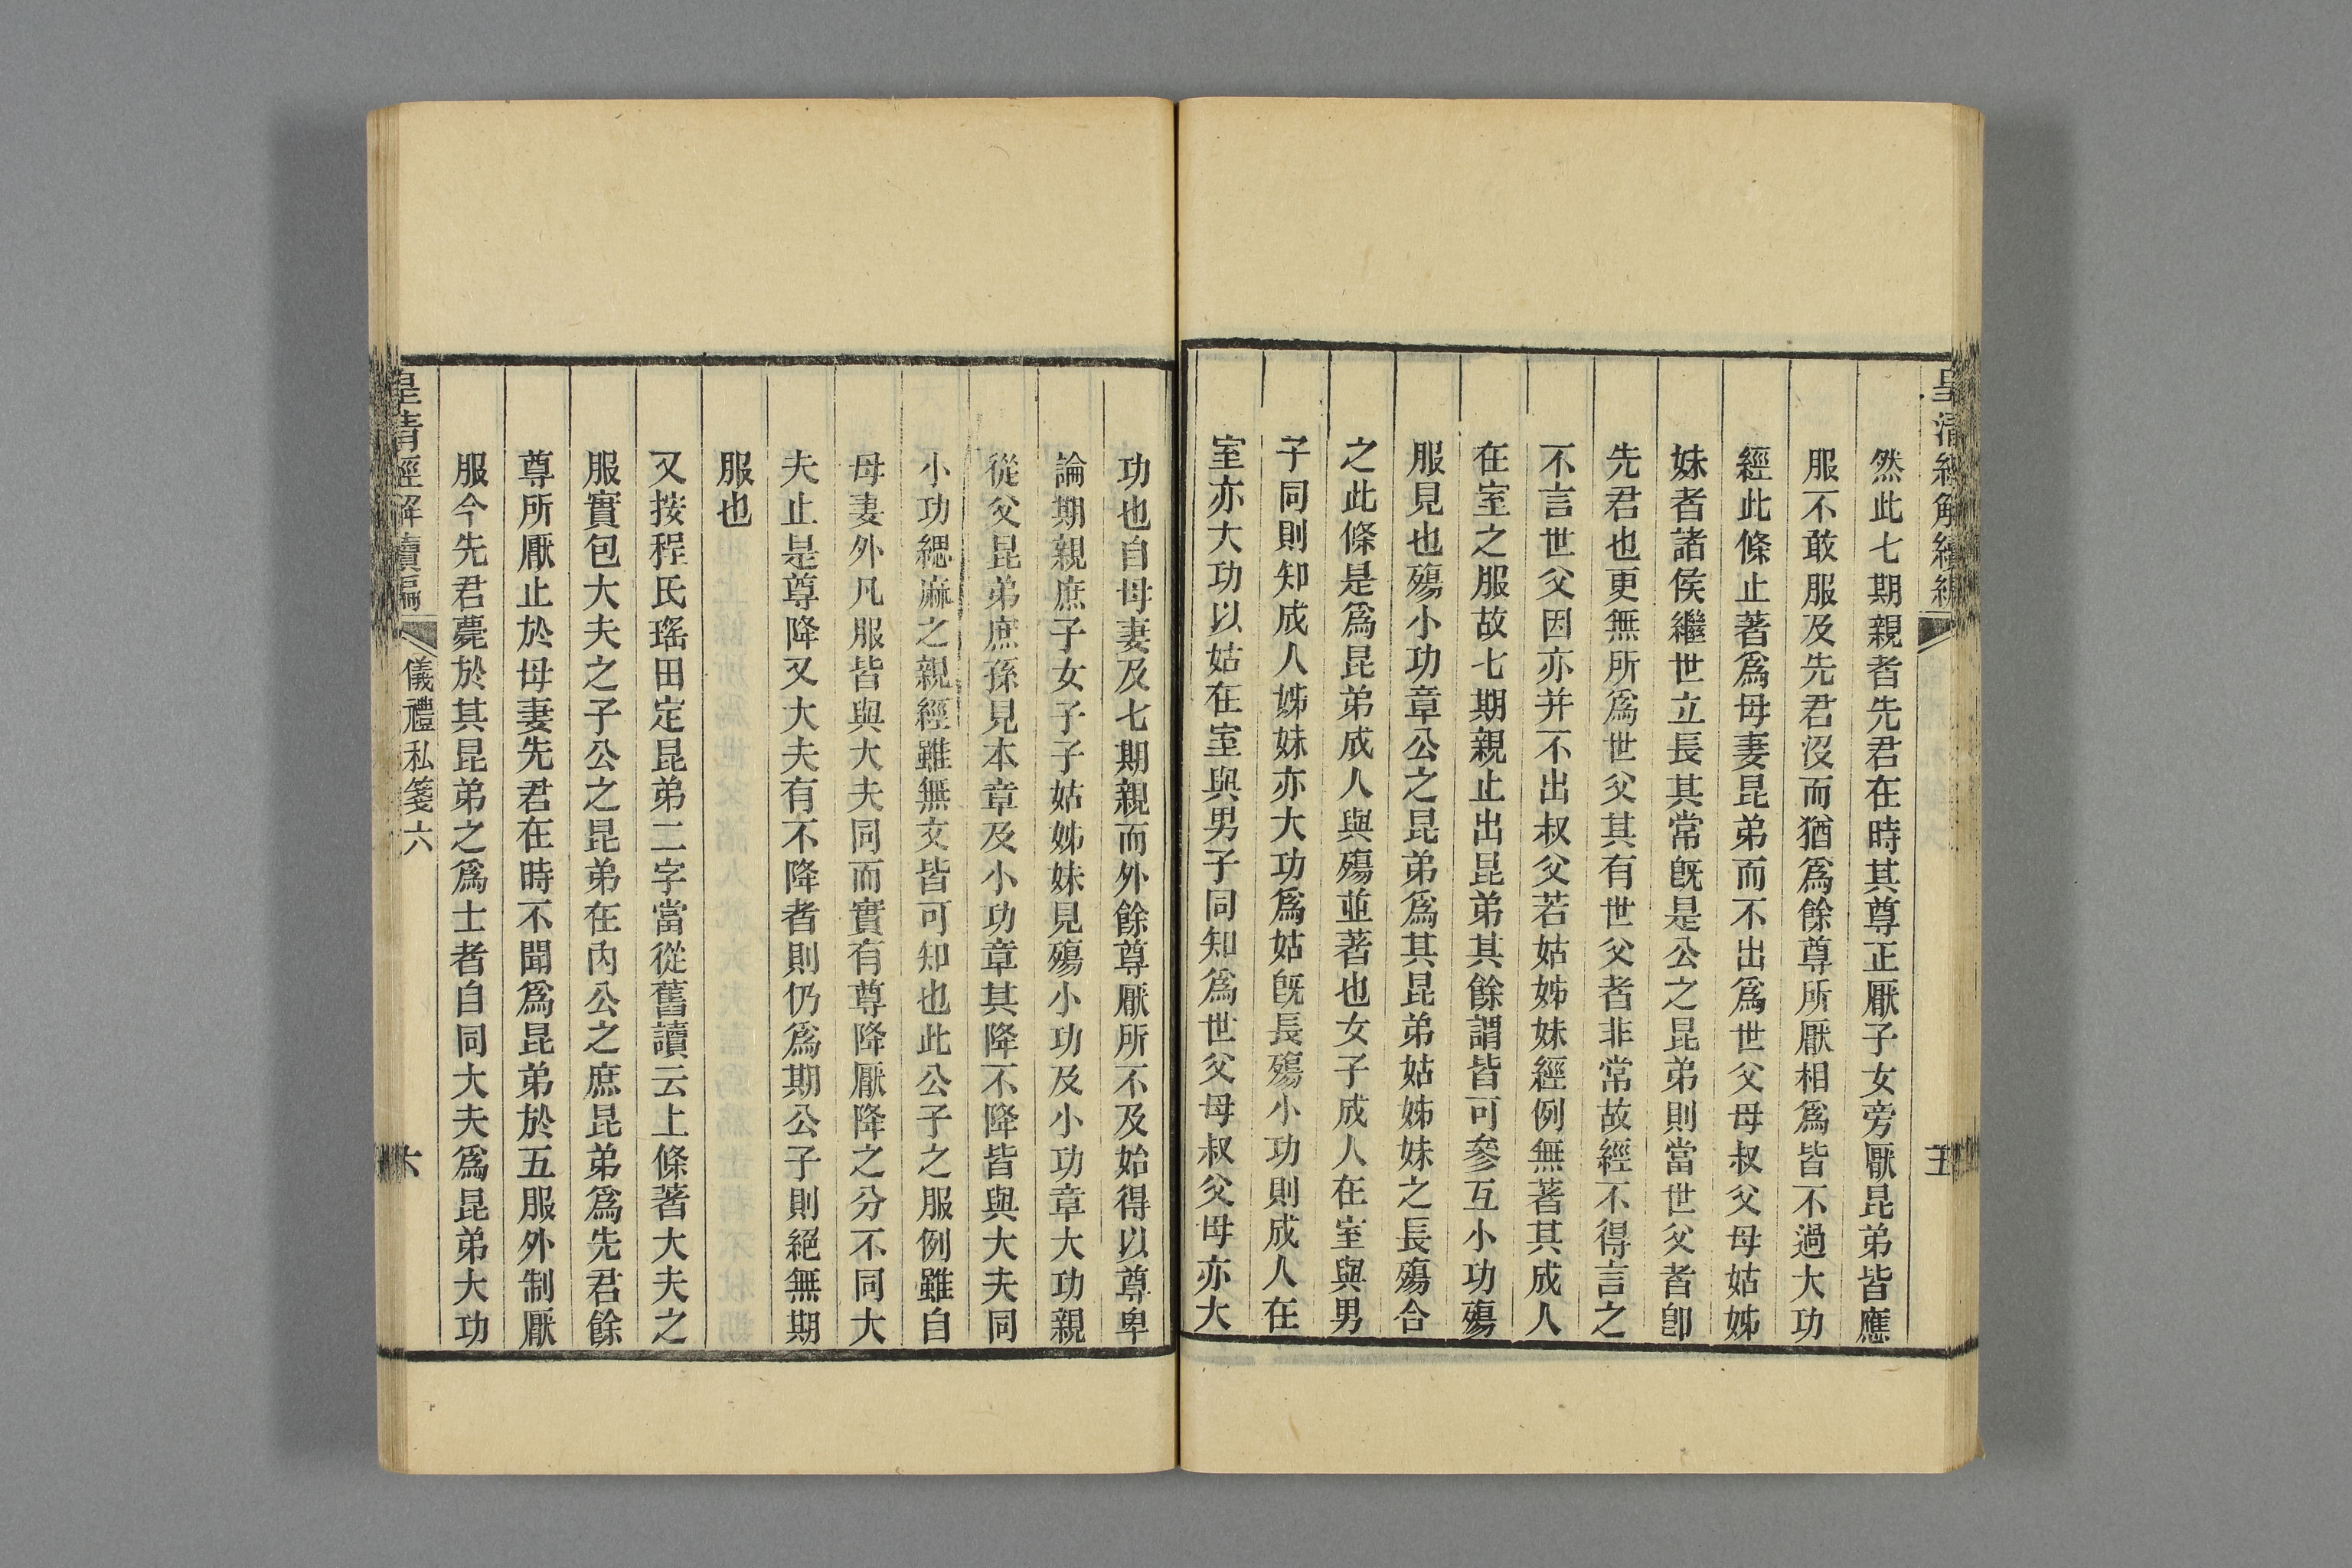 皇清經解續編
五
然此七期親者先君在時其尊正厭子女旁厭昆弟皆應
服不敢服及先君沒而猶爲餘尊所厭相爲皆不過大功
經此條止著爲母妻昆弟而不出爲世父母叔父母姑姊
妹者諸侯繼世立長其常旣是公之昆弟則當世父者卽
先君也更無所爲世父其有世父者非常故經不得言之
不言世父因亦并不出叔父若姑姊妹經例無著其成人
在室之服故七期親止出昆弟其餘謂皆可參互小功殤
服見也殤小功章公之昆弟爲其昆弟姑姊妹之長殤合
之此條是爲昆弟成人與殤並著也女子成人在室與男
子同則知成人姊妹亦大功爲姑旣長殤小功則成人在
室亦大功以姑在室與男子同知爲世父母叔父母亦大
功也自母妻及七期親而外餘尊厭所不及始得以尊卑
論期親庶子女子子姑姊妹見殤小功及小功章大功親
從父昆弟庶孫見本章及小功章其降不降皆與大夫同
小功緦麻之親經雖無文皆可知也此公子之服例雖自
母妻外凡服皆與大夫同而實有尊降厭降之分不同大
夫止是尊降又大夫有不降者則仍爲期公子則絕無期
服也
又按程氏瑤田定昆弟二字當從舊讀云上條著大夫之
服實包大夫之子公之昆弟在內公之庶昆弟爲先君餘
尊所厭止於母妻先君在時不聞爲昆弟於五服外制厭
服今先君薨於其昆弟之爲士者自同大夫爲昆弟大功
皇清經解續編
儀禮私箋六
六